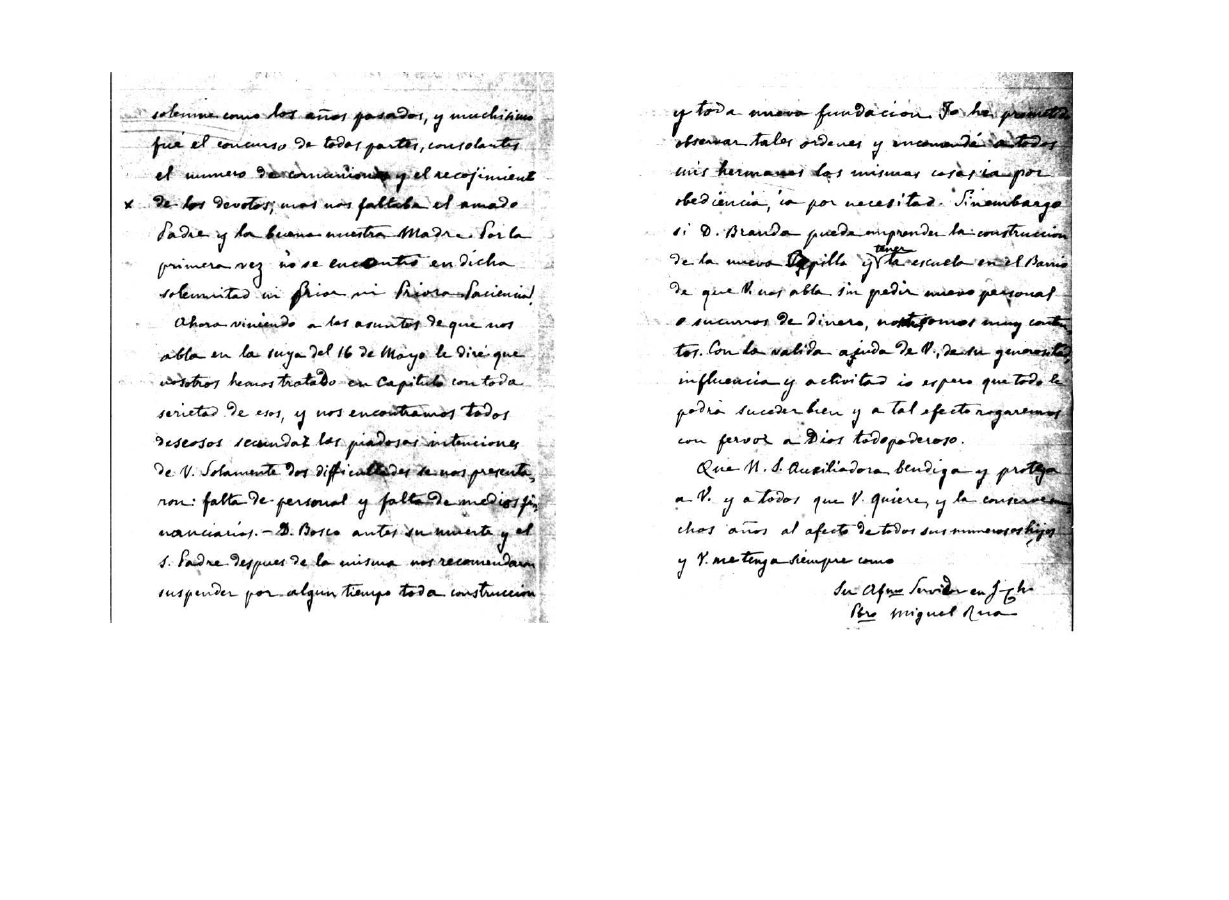 solemne como los años pasados, y muchisimo
fué el concurso de todas partes, consolantes
el numero de comuniones y el recojimiento
x de los devotos; mas nos faltaba el amado
Padre y la buena nuestra Madre. Por la
primera vez no se encontró en dicha
solemnitad ni Prior ni Priora. Paciencia!
Ahora viniendo a los asuntos de que nos
abla en la suya del 16 de Mayo le diré que
nosotros hemos tratado en Capitulo con toda
serietad de esos, y nos encontramos todos
deseosos secundar las piadosas intenciones
de V. Solamente dos difficultades se nos presenta,
ron: falta de personal y falta de medios fi,
nanciarios. - D. Bosco antes su muerte y el
S. Padre despues de la misma nos recomendaron
suspender por algun tiempo toda construccion
y toda nueva fundacion. Jo he prometido
observar tales ordenes y encomendé a todos
mis hermanos las mismas cosas ia por
obediencia, ia por necesitad. Sinembargo
si D. Branda puede emprender la construccion
de la nueva Capilla y tener la escuela en el Barrio
de que V. nos abla sin pedir nuevo personal
o sucurros de dinero, nos somos muy conten,
tos. Con la valida ajuda de V., de su generositad,
influencia y activitad io espero que todo le
podrá suceder bien y a tal efecto rogaremos
con fervor a Dios todopoderoso.
Que N. S. Auxiliadora bendiga y proteja
a V. y a todos que V. quiere, y la conserve mu
chos años al afecto de todos sus numerosos hijos
y V. me tenga siempre como
Su Afmo Servidor en J. Ch.
Pbro Miguel Rua